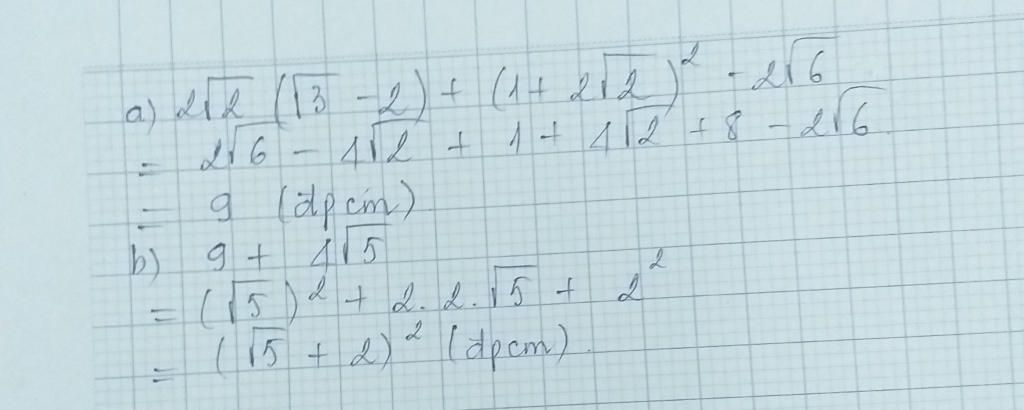 a) 2√2 (√3 - 2) + (1 + 2√2)² - 2√6
= 2√6 - 4√2 + 1 + 4√2 + 8 - 2√6
= 9 (dpcm)
b) 9 + 4√5
= (√5)² + 2.2.√5 + 2²
= (√5 + 2)² (dpcm).